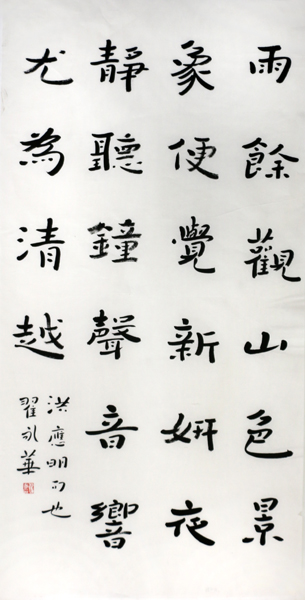 雨餘觀山色景
象便覺新妍夜
靜聽鐘聲音響
尤為清越
洪應明句也
翟永華